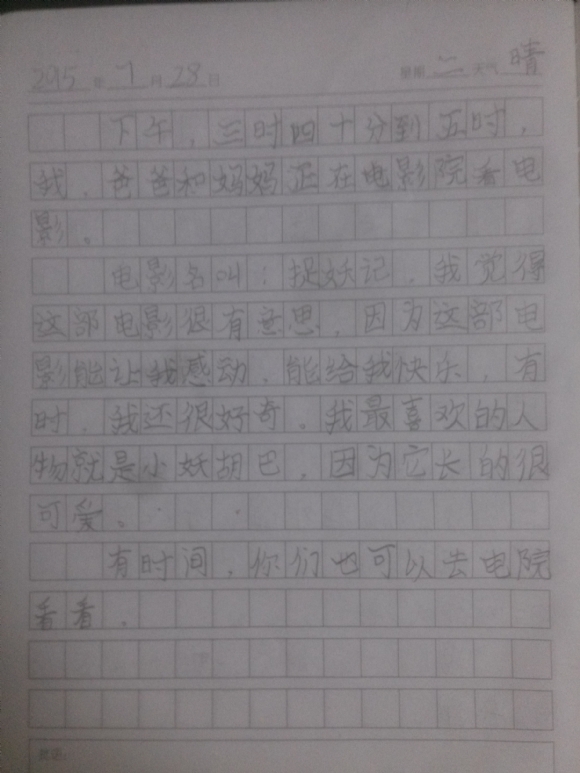 2015年7月28日 星期二 天气 晴
下午，三时四十分到五时，
我、爸爸和妈妈正在电影院看电
影。
电影名叫：捉妖记，我觉得
这部电影很有意思，因为这部电
影能让我感动，能给我快乐，有
时，我还很好奇。我最喜欢的人
物就是小妖胡巴，因为它长的很
可爱。
有时间，你们也可以去电院
看看。